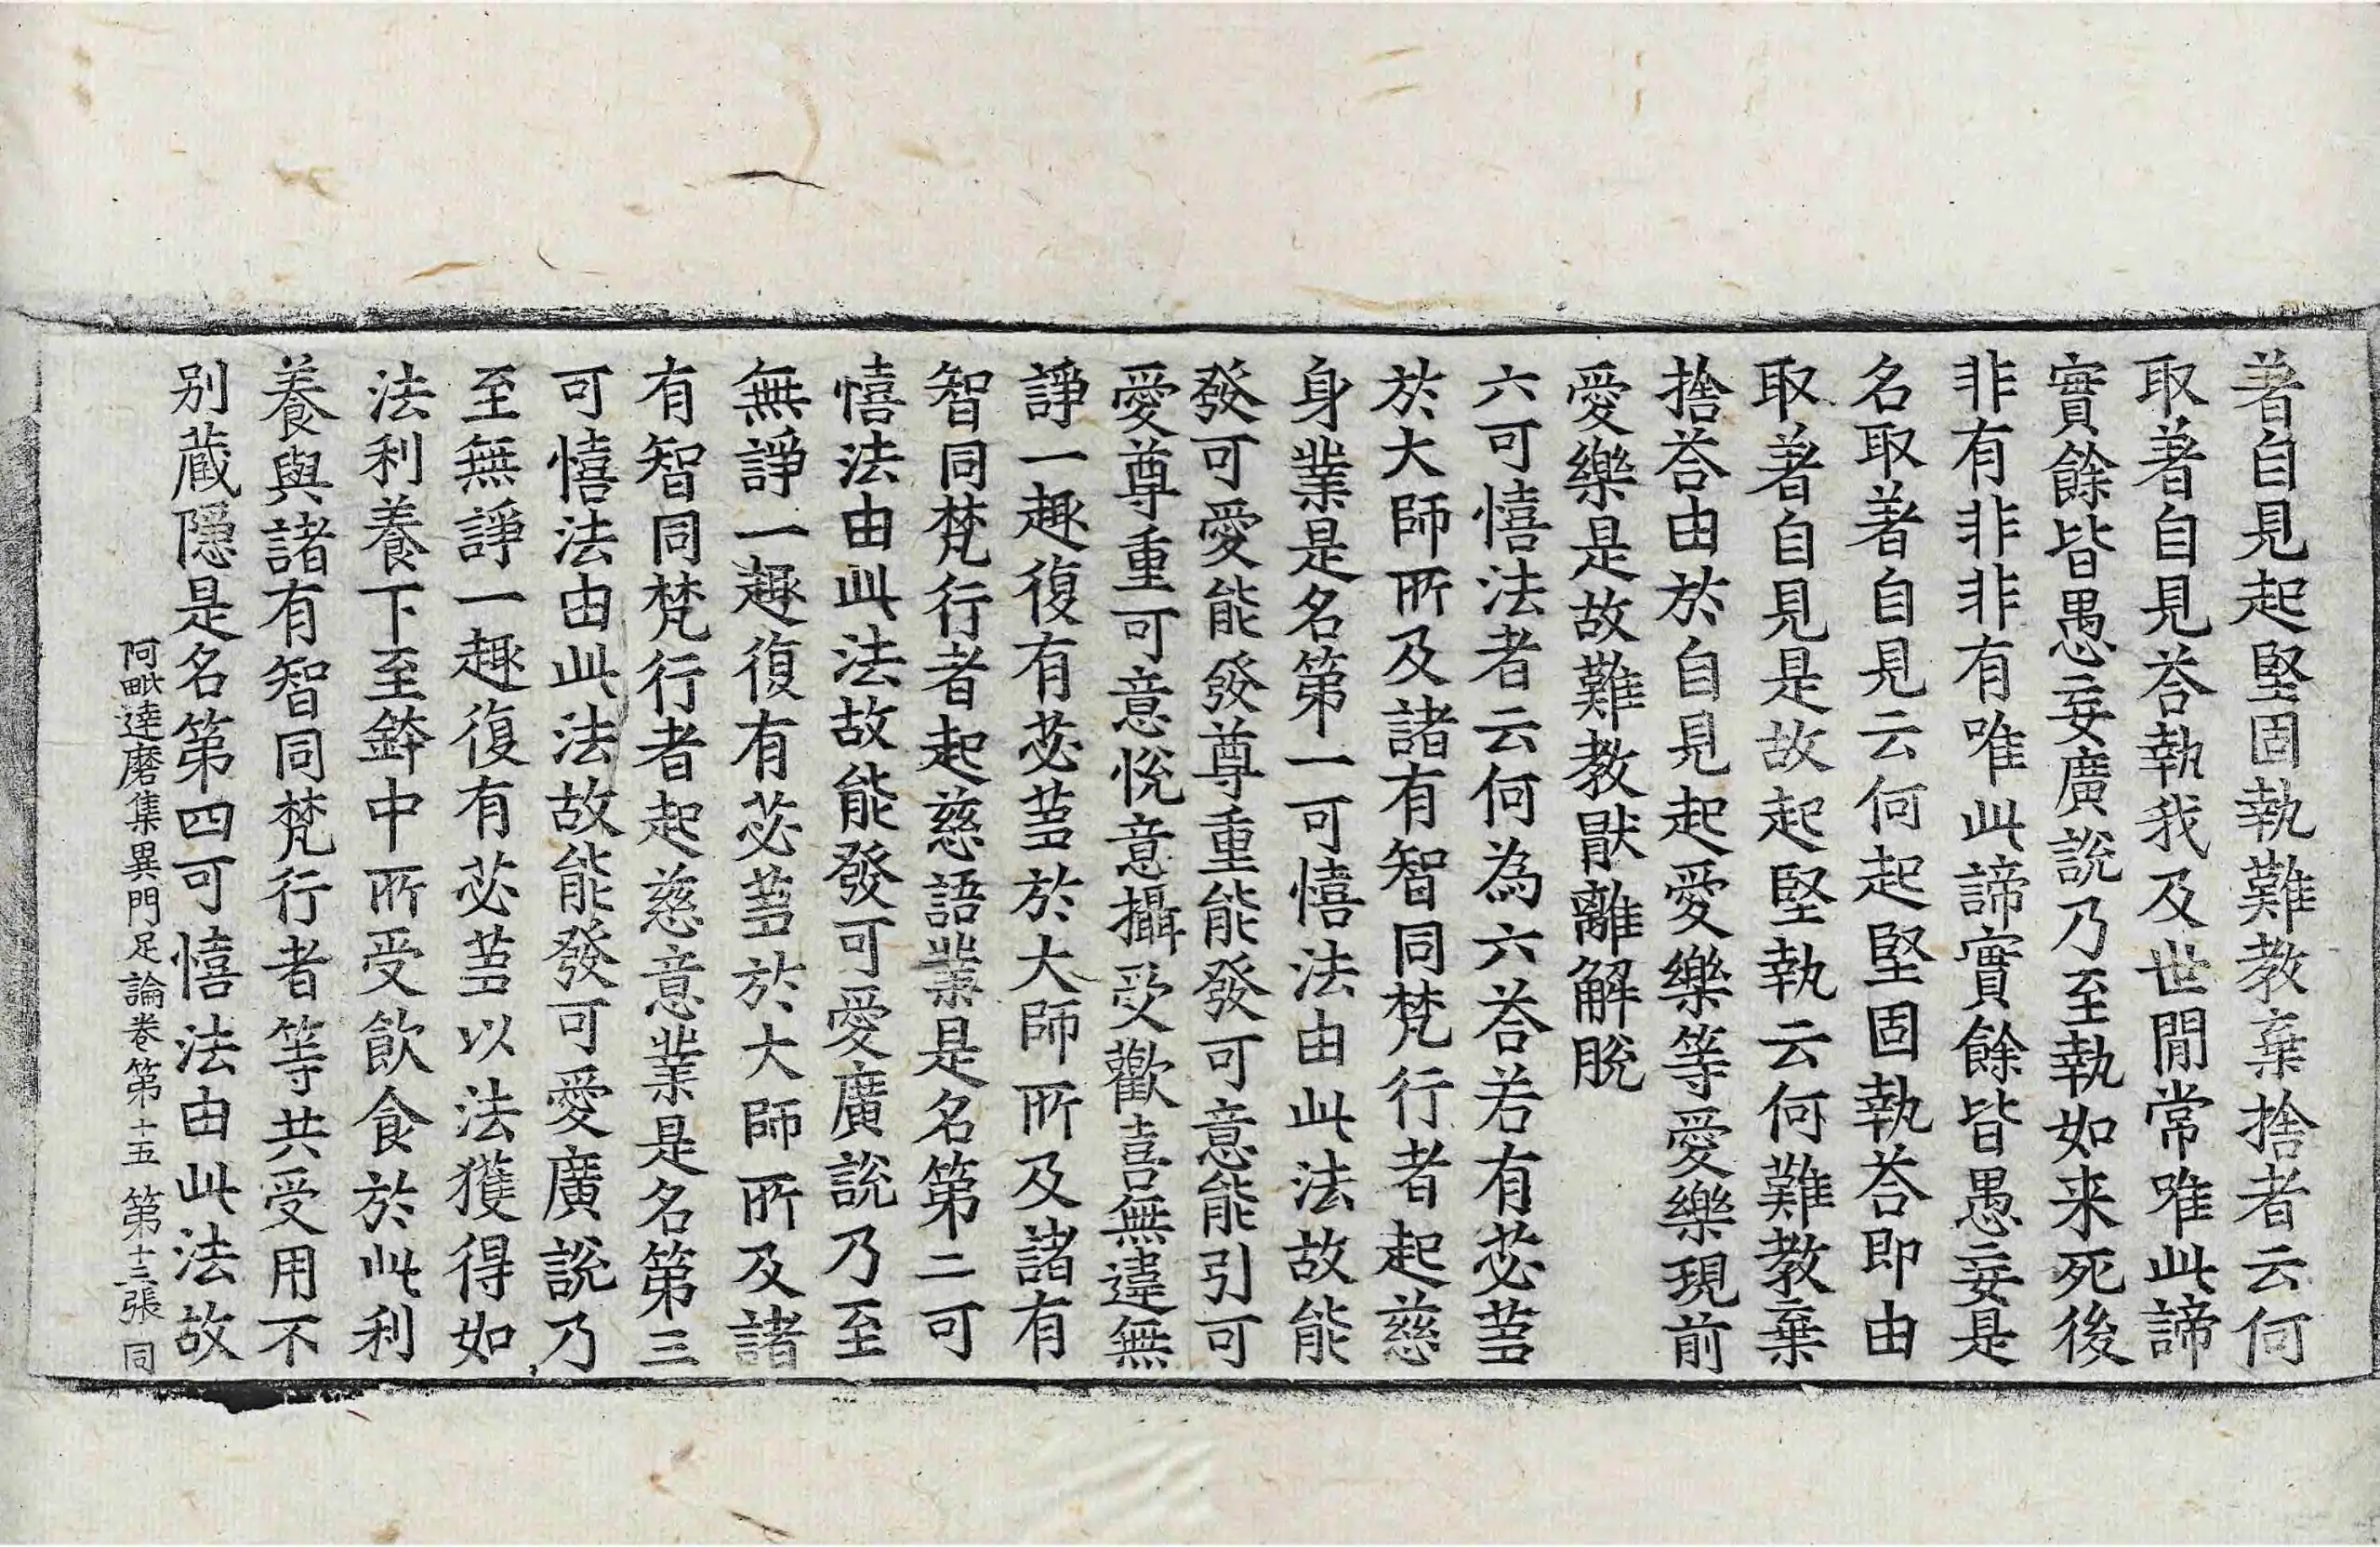 著自見起堅固執難教棄捨者云何
取著自見荅執我及世閒常唯此諦
實餘皆愚妄廣說乃至執如来死後
非有非非有唯此諦實餘皆愚妄是
名取著自見云何起堅固執荅即由
取著自見是故起堅執云何難教棄
捨荅由於自見起愛樂等愛樂現前
愛樂是故難教猒離解脫
六可憘法者云何為六荅若有苾蒭
於大師所及諸有智同梵行者起慈
身業是名第一可憘法由此法故能
發可愛能發尊重能發可意能引可
愛尊重可意悅意攝受歡喜無違無
諍一趣復有苾蒭於大師所及諸有
智同梵行者起慈語業是名第二可
憘法由此法故能發可愛廣說乃至
無諍一趣復有苾蒭於大師所及諸
有智同梵行者起慈意業是名第三
可憘法由此法故能發可愛廣說乃
至無諍一趣復有苾蒭以法獲得如
法利養下至鉢中所受飲食於此利
養與諸有智同梵行者等共受用不
别蔵隱是名第四可憘法由此法故
阿毗達磨集異門足論卷第十五 第十三張 同